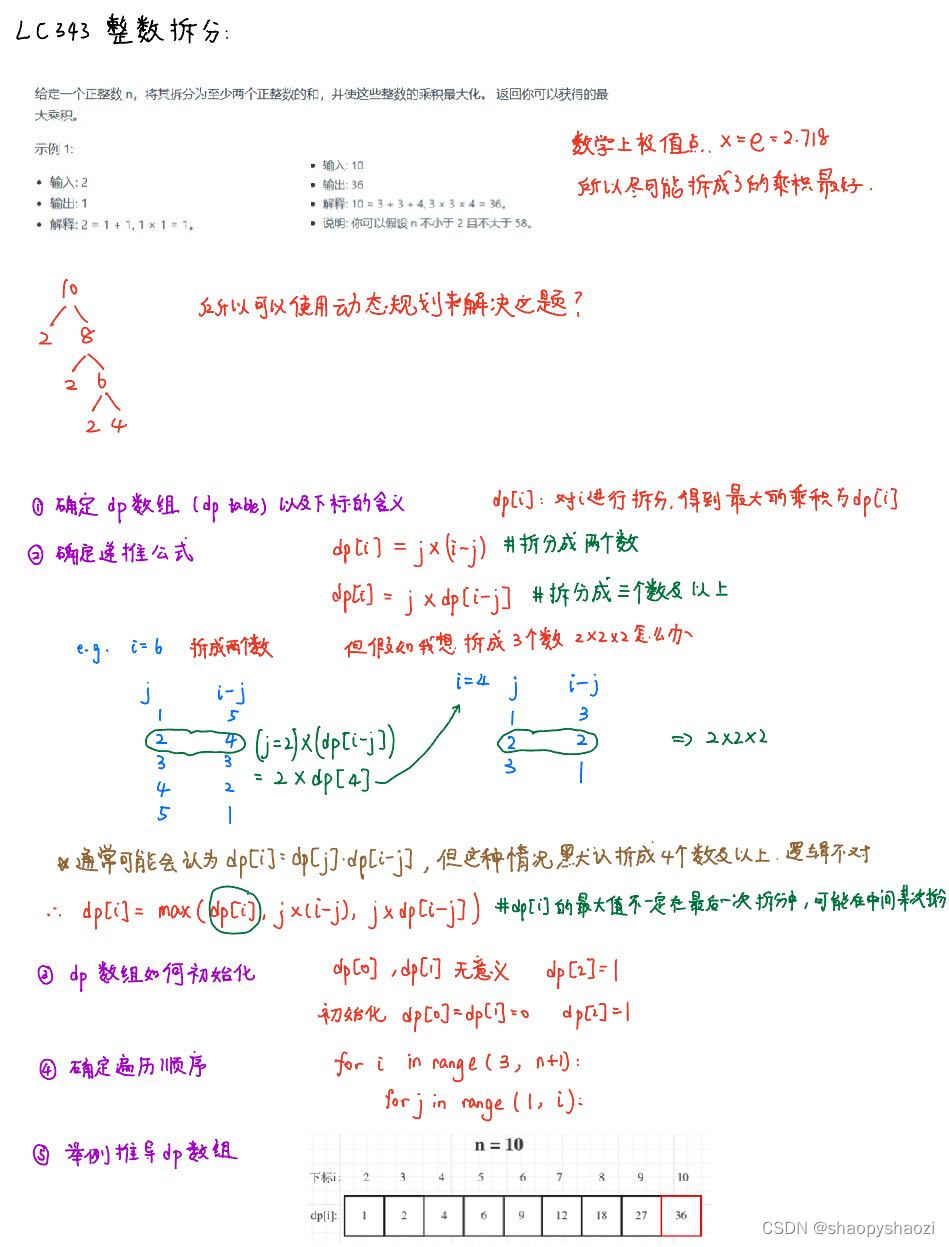 LC343 整数拆分:
给定一个正整数 n，将其拆分为至少两个正整数的和，并使这些整数的乘积最大化。 返回你可以获得的最
大乘积。
示例 1:
• 输入: 2
• 输出: 1
• 解释: 2 = 1 + 1, 1 × 1 = 1。
• 输入: 10
• 输出: 36
• 解释: 10 = 3 + 3 + 4, 3 × 3 × 4 = 36。
• 说明: 你可以假设 n 不小于 2 且不大于 58。
数学上极值点. x=e=2.718
所以尽可能拆成3的乘积最好.
10
2 8
2 6
2 4
所以可以使用动态规划来解决这题?
① 确定dp数组 (dp table) 以及下标的含义
dp[i]: 对i进行拆分, 得到最大的乘积为dp[i]
② 确定递推公式
dp[i] = j×(i-j) #拆分成两个数
dp[i] = j×dp[i-j] #拆分成三个数及以上
e.g. i=6 拆成两个数 但假如我想拆成3个数 2×2×2怎么办
j i-j
1 5
2 4 (j=2)×(dp[i-j])
3 3 = 2×dp[4]
4 2
5 1
i=4 j i-j
1 3
2 2 => 2×2×2
3 1
* 通常可能会认为dp[i]=dp[j]·dp[i-j], 但这种情况默认拆成4个数及以上. 逻辑不对
∴ dp[i]= max(dp[i], j×(i-j), j×dp[i-j]) #dp[i]的最大值不一定在最后一次拆分中, 可能在中间某次拆分
③ dp数组如何初始化 dp[0], dp[1] 无意义 dp[2]=1
初始化 dp[0]=dp[1]=0 dp[2]=1
④ 确定遍历顺序 for i in range(3, n+1):
for j in range(1, i):
⑤ 举例推导dp数组
n = 10
下标i: 2 3 4 5 6 7 8 9 10
dp[i]: 1 2 4 6 9 12 18 27 36
CSDN @shaopyshaozi